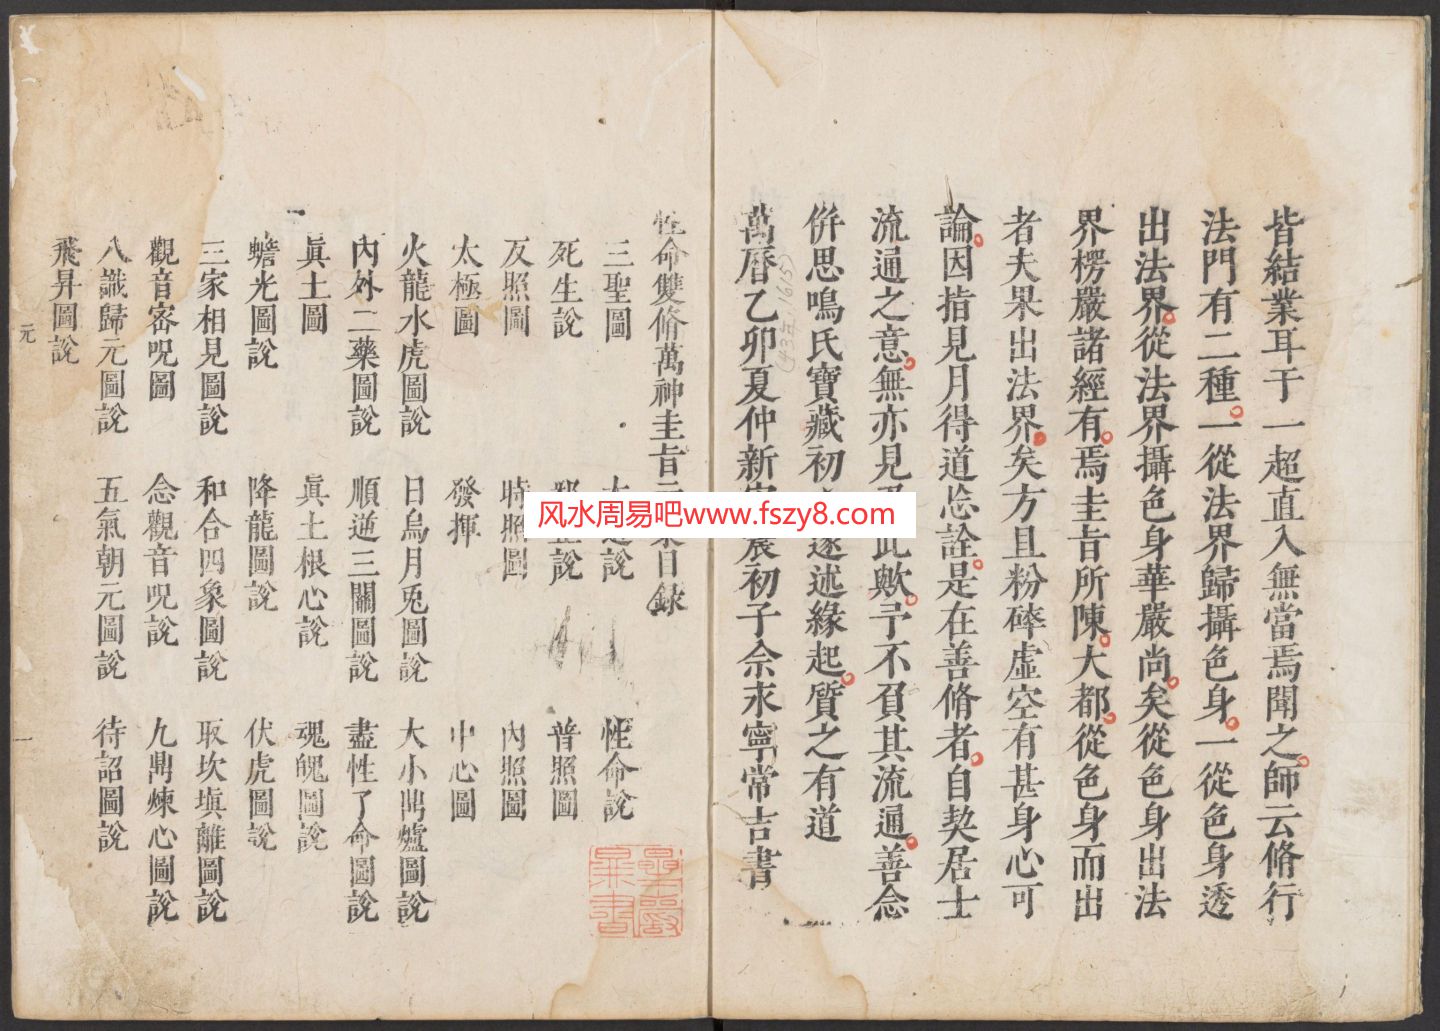 皆結業耳于一超直入無當焉聞之師云脩行
法門有二種一從法界歸攝色身一從色身透
出法界從法界攝色身華嚴尚矣從色身出法
界楞嚴諸經有焉圭旨所陳大都從色身而出
者夫果出法界矣方且粉碎虛空有甚身心可
論因指見月得道忘詮是在善脩者自契居士
流通之意無亦見及此歟予不負其流通善念
併思鳴氏寶藏初遂述緣起質之有道
萬曆乙卯夏仲新初子余永寧常吉書
(43五, 1615)
性命雙脩萬神圭旨元集目錄
三聖圖 大道說 性命說
死生說 邪正說 普照圖
反照圖 時照圖 內照圖
太極圖 發揮 中心圖
火龍水虎圖說 日烏月兎圖說 大小鼎爐圖說
內外二藥圖說 順逆三關圖說 盡性了命圖說
眞土圖 眞土根心說 魂魄圖說
蟾光圖說 降龍圖說 伏虎圖說
三家相見圖說 和合四象圖說 取坎塡離圖說
觀音密呪圖 念觀音呪說 九鼎煉心圖說
八識歸元圖說 五氣朝元圖說 待詔圖說
飛昇圖說
元
一
风水周易吧www.fszy8.com